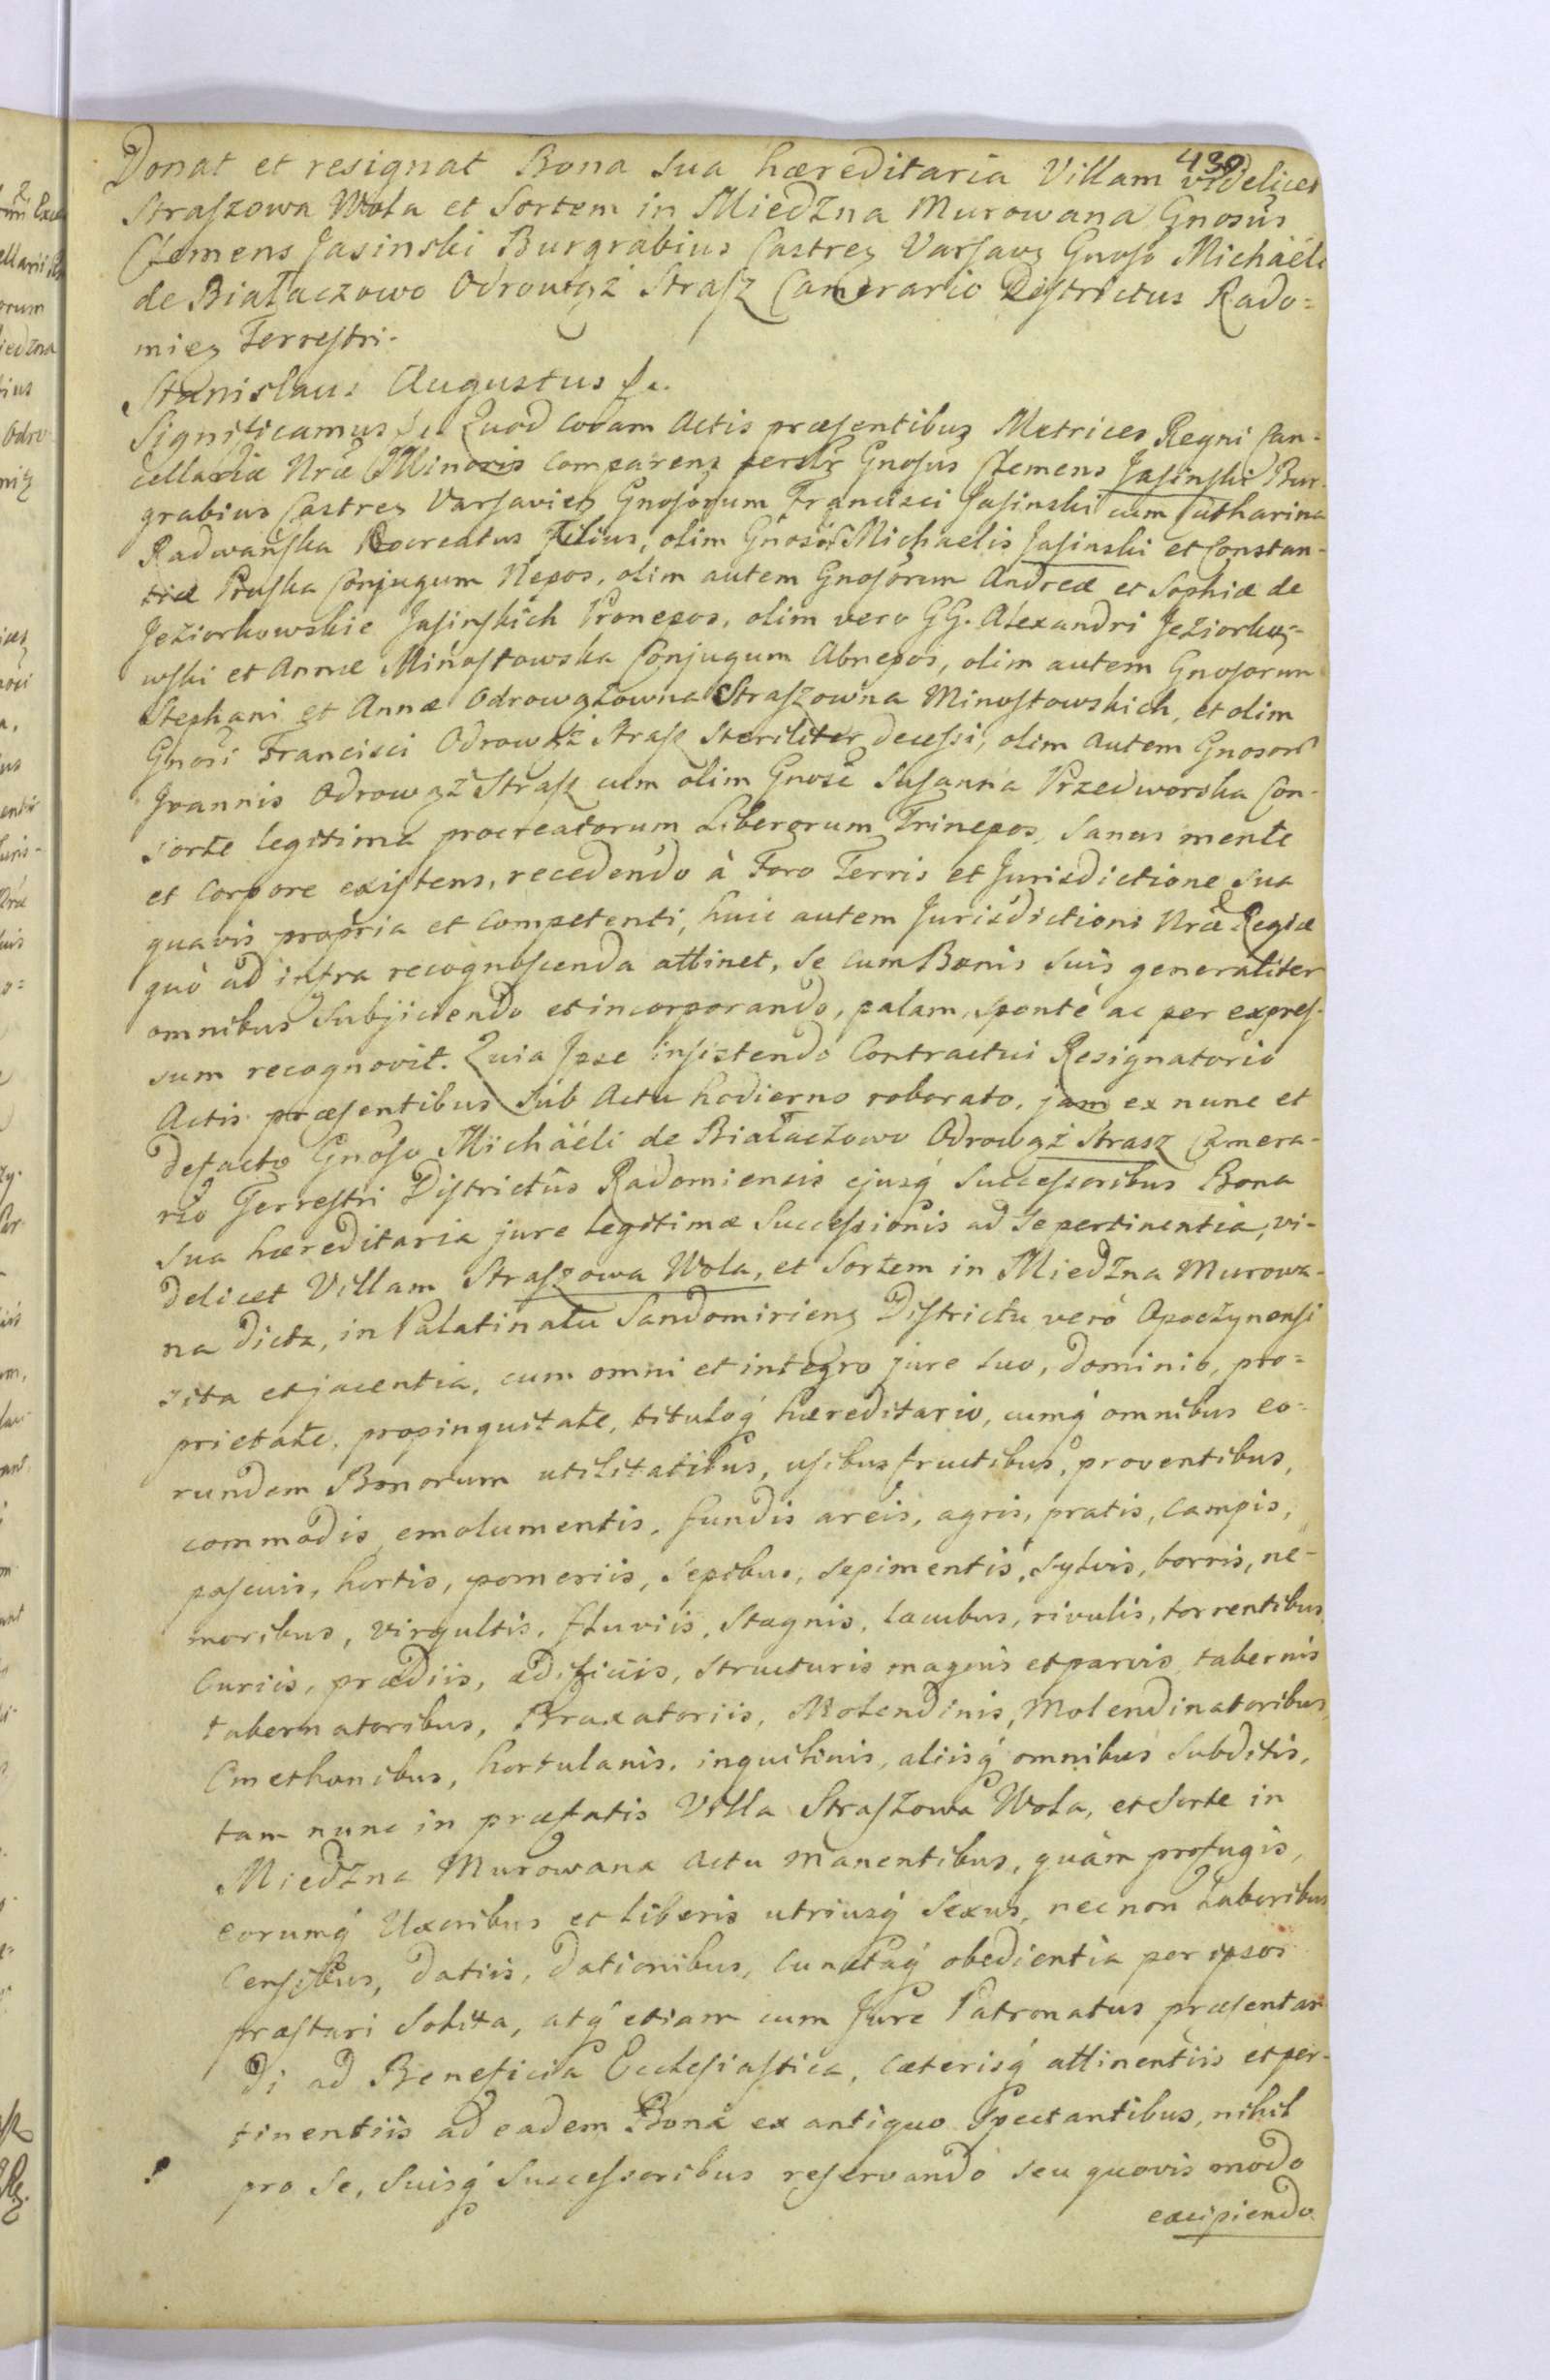 430
Donat et resignat Bona sua hæreditaria Villam videlicet
Straszowa Wola et Sortem in Miedzna Murowana Gnosus
Clemens Jasinski Burgrabius Castren Varsavn Gnoso Michaéli
de Białaczowo Odrowąż Strasz Camerario Districtus Rado=
mien Terrestri.
Stanislaus Augustus &c.
Significamus &c. Quod coram Actis præsentibus Metrices Regni Can=
cellariæ Nræ Minoris comparens personlr Gnosus Clemens Jasinski Bur-
grabius Castren Varsavien Gnosorum Francisci Jasinski cum Catharina
Radwańska Procreatus Filius, olim Gnosor Michaelis Jasinski et Constan-
tiæ Pruska Conjugum Nepos, olim autem Gnosorum Andreæ et Sophiæ de
Jeziorkowskie Jasinskich Pronepos, olim vero GG. Alexandri Jeziorko=
wski et Annæ Minostowska Conjugum Abnepos, olim autem Gnosorum
Stephani et Annæ Odrowążowna Straszowna Minostowskich, et olim
Gnosi Francisci Odrowąż Strasz steriliter decessi, olim autem Gnosor
Joannis Odrowąż Strasz cum olim Gnose Susanna Przedworska Con-
sorte legitima procreatorum Liberorum Trinepos, Sanus mente
et Corpore existens, recedendo à Foro Terris et Jurisdictione sua
quavis propria et competenti, huic autem Jurisdictioni Nræ Regiæ
quò ad infra recognoscenda attinet, se cum Bonis suis generaliter
omnibus subjiciendo et incorporando, palam, sponté ac per expres-
sum recognovit. Quia Ipse insistendo Contractui Resignatorio
Actis præsentibus sub Actu hodierno roborato, jam ex nunc et
defacto Gnoso Michaéli de Białaczowo Odrowąż Strasz Camera-
rio Terrestri Districtûs Radomiensis ejusq́ Successoribus Bona
sua hæreditaria jure legitimæ Successionis ad se pertinentia, vi-
delicet Villam Straszowa Wola, et Sortem in Miedzna Murowa-
na dicta, in Palatinatu Sandomiriens Districtu verò Opoczynensi
sita et jacentia, cum omni et integro jure suo, dominio, pro=
prietate, propinquitate, tituloq́ hæreditario, cumq́ omnibus eo=
rundem Bonorum utilitatibus, usibusfructibus, proventibus,
commodis, emolumentis, fundis areis, agris, pratis, campis,
pascuis, hortis, pomeriis, sepibus, sepimentis, sylvis, borris, ne-
moribus, virgultis, fluviis, stagnis, lacubus, rivulis, torrentibus,
Curiis, prædiis, ædificiis, structuris magnis et parvis, tabernis
tabernatoribus, Braxatoriis, Molendinis, Molendinatoribus,
Cmethonibus, hortulanis, inquilinis, aliisq́ omnibus subditis,
tam nunc in præfatis Villa Straszowa Wola, et Sorte in
Miedzna Murowana actu manentibus, quàm profugis,
eorumq́ Uxoribus et liberis utriusq́ Sexus, necnon Laboribus
Censibus, datiis, dationibus, cunctaq́ obedientia per ipsos
præstari solita, atq́ etiam cum Jure Patronatus præsentan
di ad Beneficia Ecclesiastica, cæterisq́ attinentiis et per-
tinentiis ad eadem Bona ex antiquo spectantibus, nihil
pro se, suisq́ Successoribus reservando seu quovis modo
excipiendo